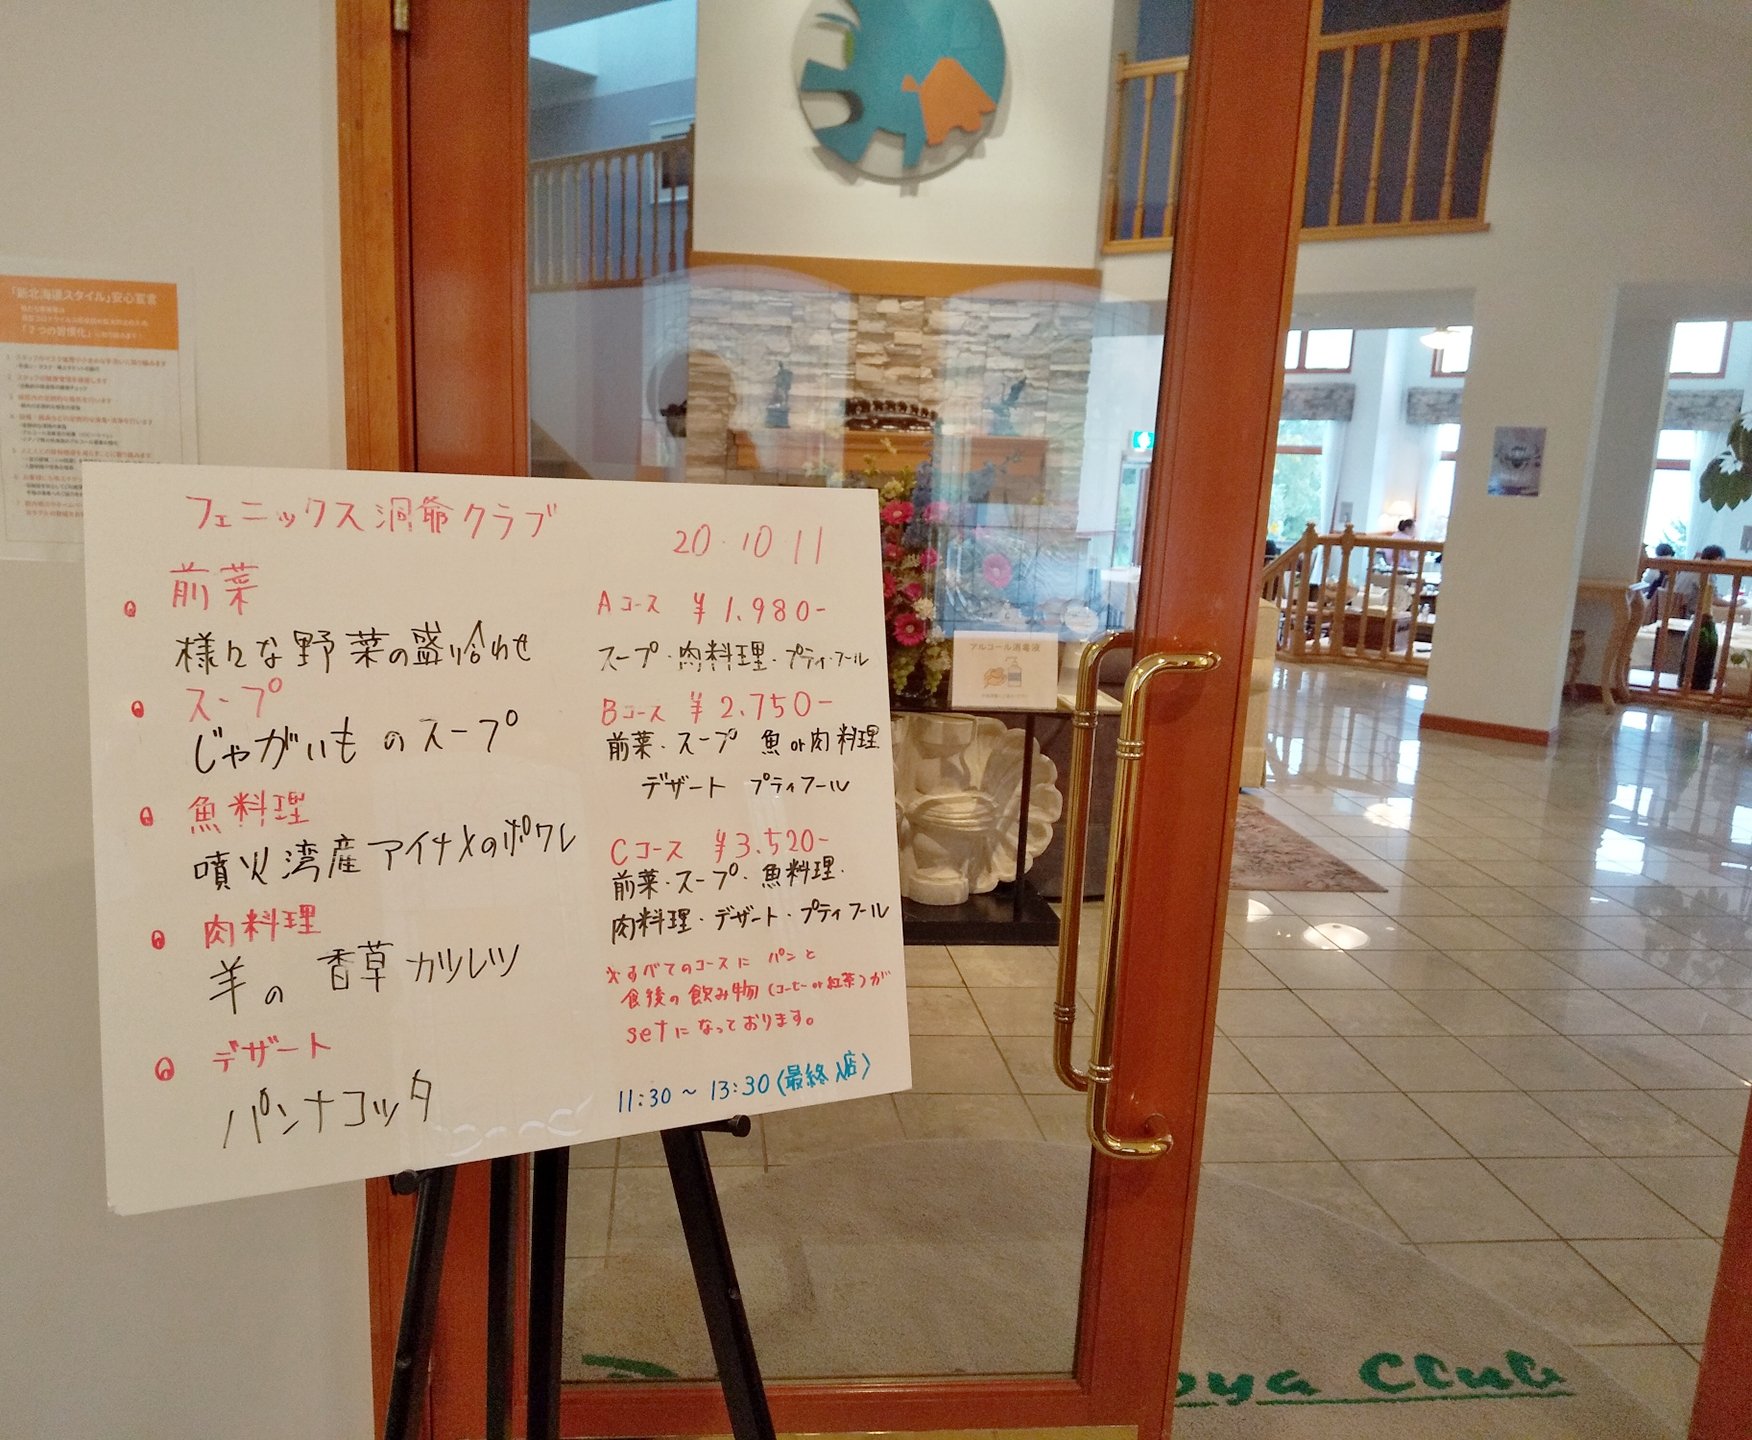 フェニックス洞爺クラブ
20.10 11
前菜
様々な野菜の盛り合わせ
スープ
じゃがいものスープ
魚料理
噴火湾産アイナメのポワレ
肉料理
羊の 香草カツレツ
デザート
パンナコッタ
Aコース ¥1.980-
スープ・肉料理・プティ・フール
Bコース ¥2.750-
前菜・スープ 魚or肉料理
デザート プティフール
Cコース ¥3.520-
前菜・スープ・魚料理・
肉料理・デザート・プティフール
※すべてのコースに パンと
食後の飲み物(コーヒーor紅茶)が
setになっております。
11:30～13:30(最終入店)
「新北海道スタイル」安心宣言
「7つの習慣化」
アルコール消毒液
oya Club